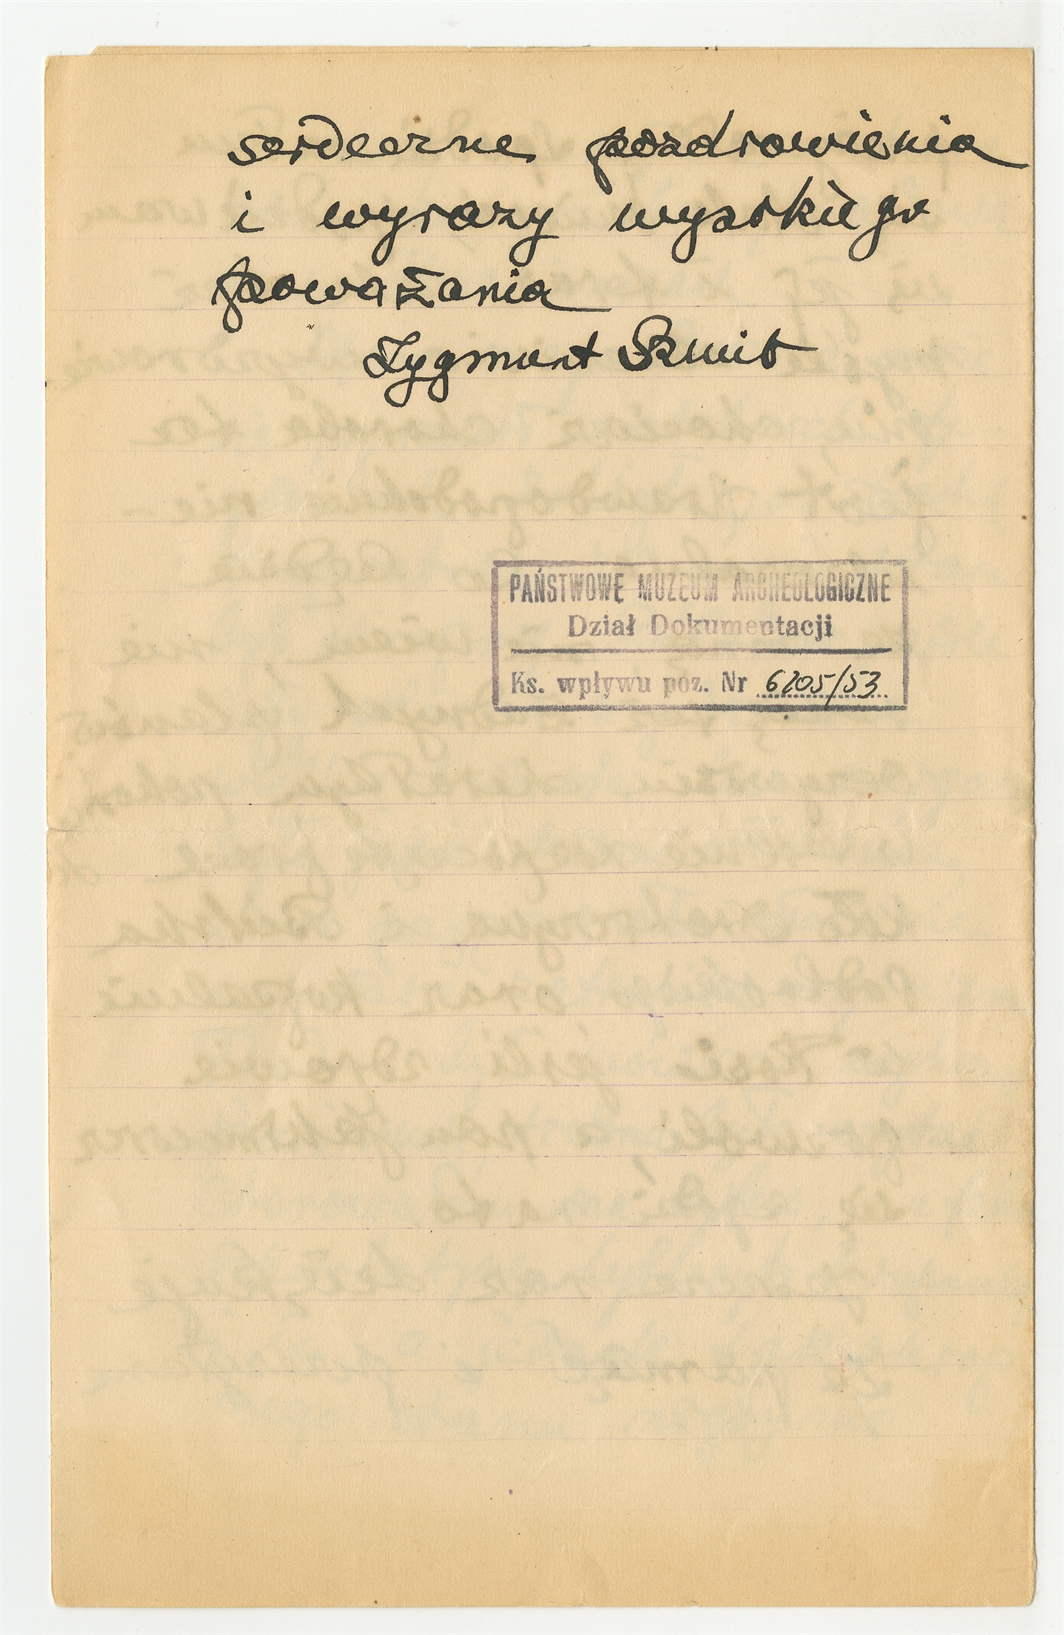 serdeczne pozdrowienia
i wyrazy wysokiego
poważania
Zygmunt Szmit
PAŃSTWOWE MUZEUM ARCHEOLOGICZNE
Dział Dokumentacji
Ks. wpływu poz. Nr 6205/53